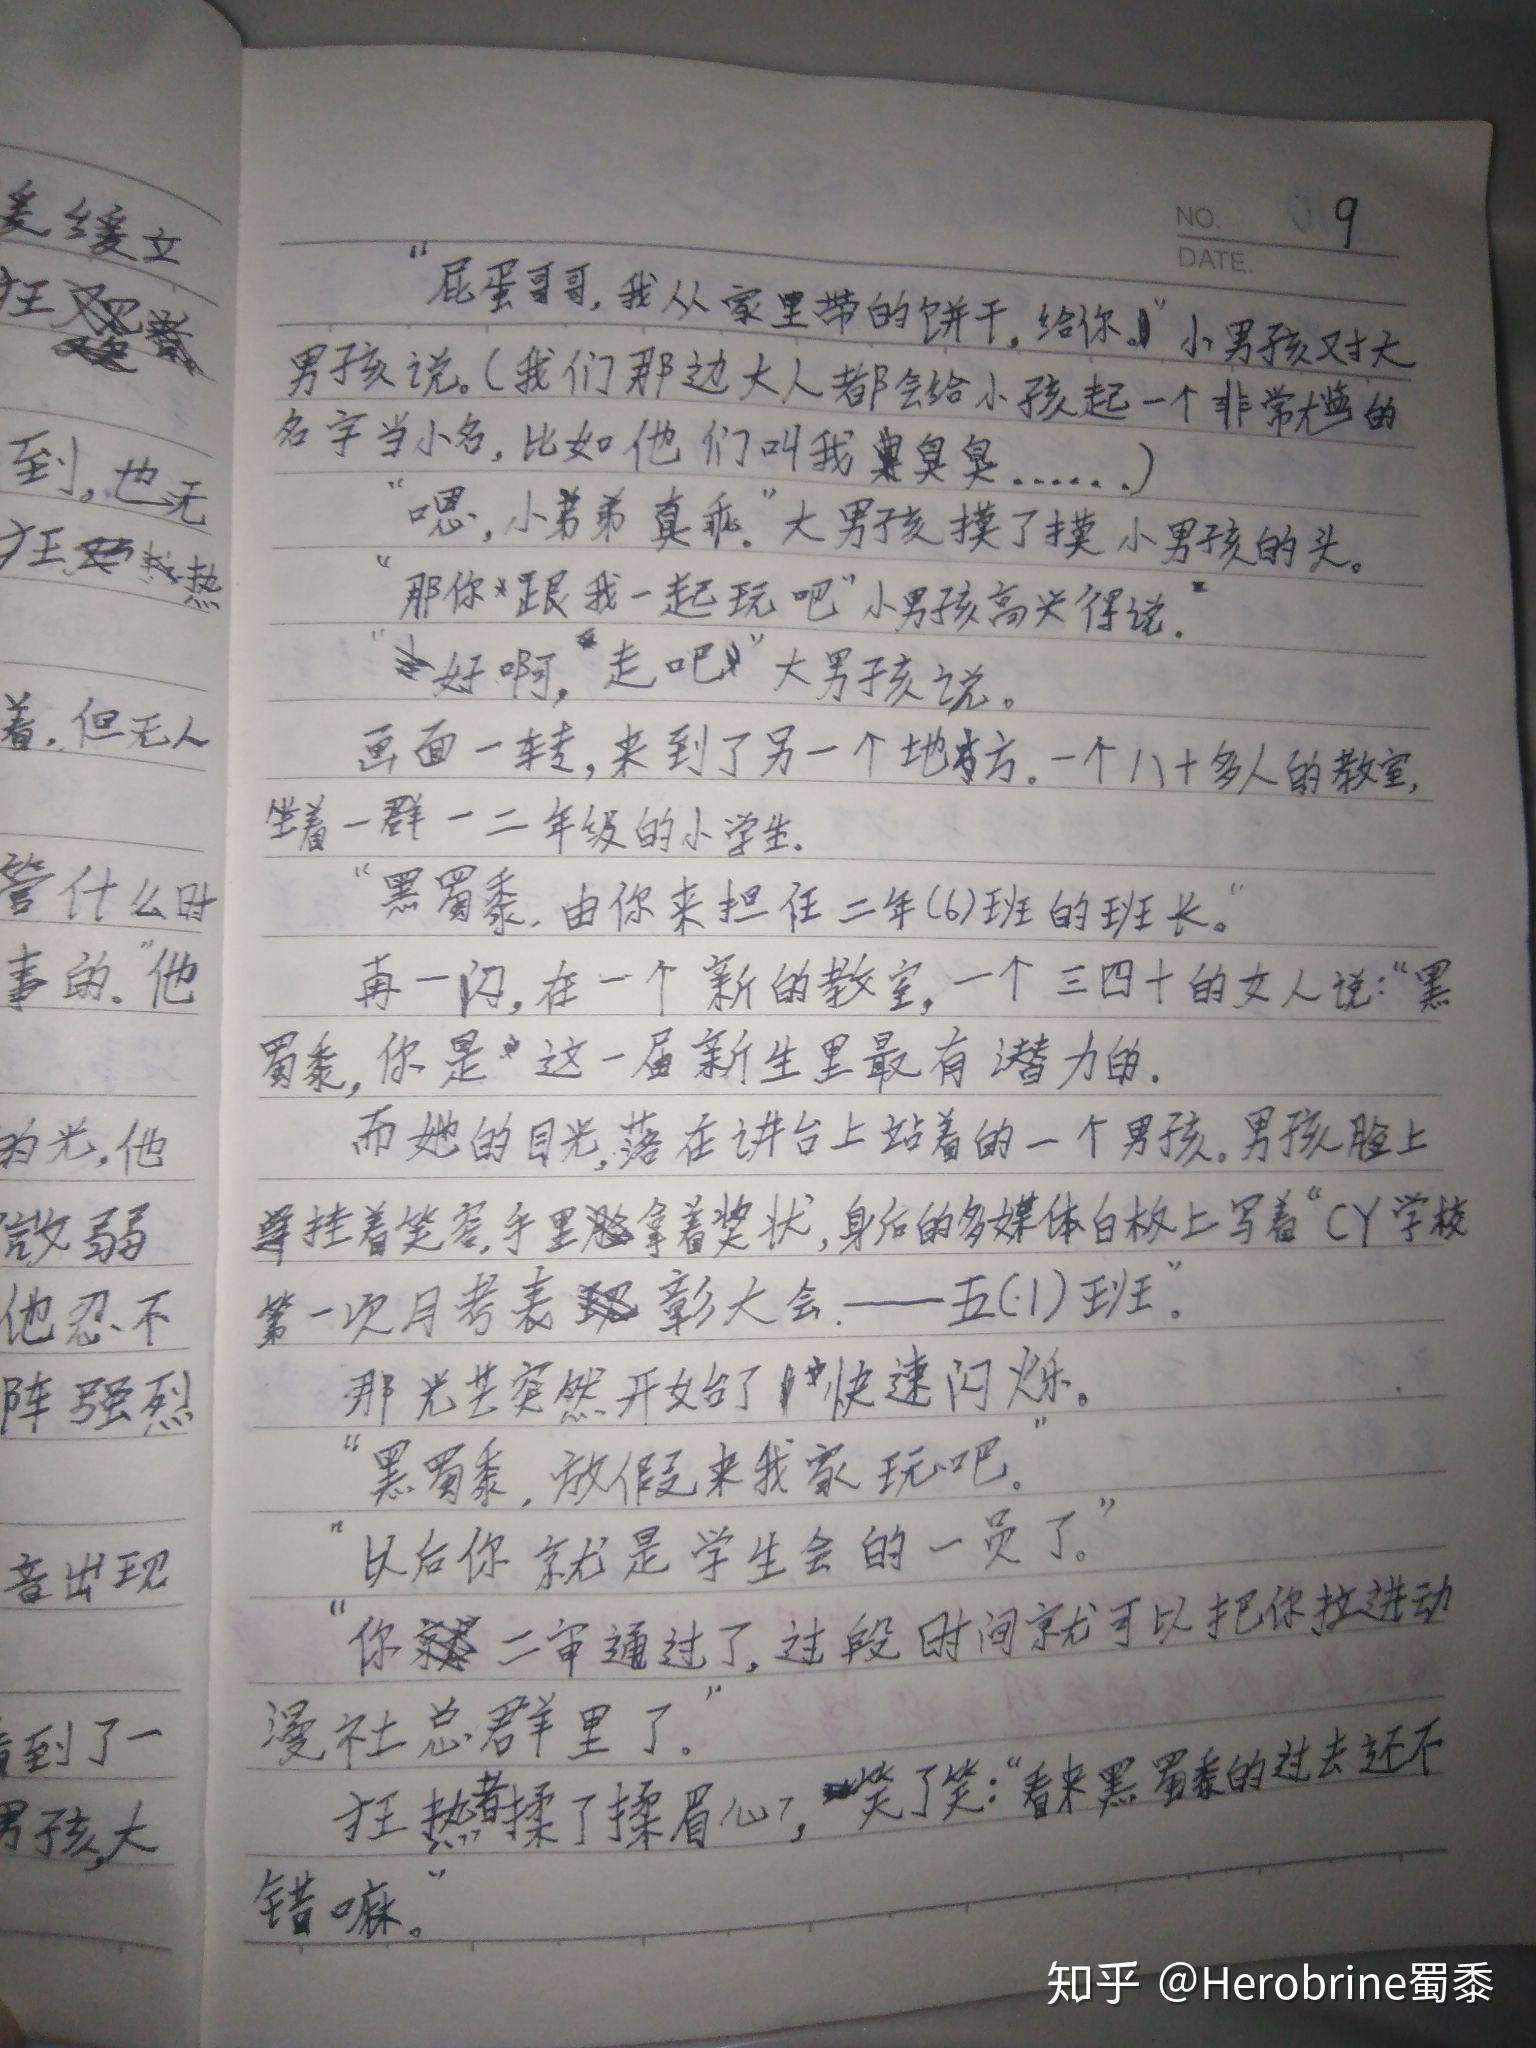 缓文
狂
到。也无
狂热
着。但无人
管什么时
事的。”他
的光，他
微弱
他忍不
阵强烈
音出现
看到了一
男孩，大
NO. 9
DATE.
“屁蛋哥哥，我从家里带的饼干，给你。”小男孩对大
男孩说。（我们那边大人都会给小孩起一个非常尬的
名字当小名，比如他们叫我臭臭……）
“嗯，小弟弟真乖。”大男孩摸了摸小男孩的头。
“那你跟我一起玩吧”小男孩高兴得说。
“好啊，走吧”大男孩说。
画面一转，来到了另一个地方。一个八十多人的教室，
坐着一群一二年级的小学生.
“黑蜀黍，由你来担任二年(6)班的班长。”
再一闪，在一个新的教室，一个三四十的女人说：“黑
蜀黍，你是这一届新生里最有潜力的.
而她的目光，落在讲台上站着的一个男孩。男孩脸上
挂着笑容，手里拿着奖状，身后的多媒体白板上写着“CY学校
第一次月考表彰大会.——五(1)班”。
那光芒突然开始了快速闪烁。
“黑蜀黍，放假来我家玩吧。”
“以后你就是学生会的一员了。”
“你二审通过了，过段时间就可以把你拉进动
漫社总群里了。”
狂热者揉了揉眉心，笑了笑：“看来黑蜀黍的过去还不
错嘛。”
知乎 @Herobrine蜀黍